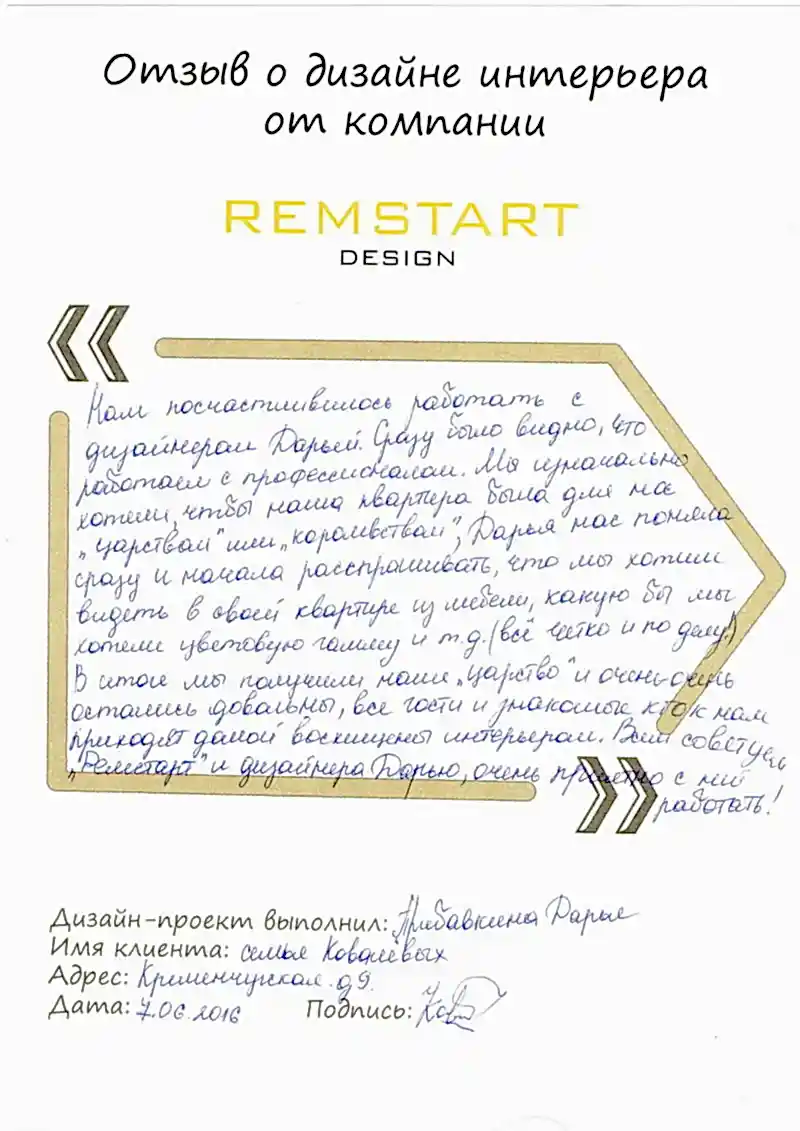 Отзыв о дизайне интерьера
от компании
REMSTART
DESIGN
Нам посчастливилось работать с
дизайнером Дарьей. Сразу было видно, что
работаем с профессионалом. Мы изначально
хотели, чтобы наша квартира была для нас
„царством" или „королевством", Дарья нас поняла
сразу и начала расспрашивать, что мы хотим
видеть в своей квартире из мебели, какую бы мы
хотели цветовую гамму и т.д. (всё чётко и по делу!)
В итоге мы получили наше „царство" и очень-очень
остались довольны, все гости и знакомые кто к нам
приходят домой восхищены интерьером. Всем советуем
„Ремстарт" и дизайнера Дарью, очень приятно с ней
работать!
Дизайн-проект выполнил: Прибавкина Дарья
Имя клиента: семья Ковалёвых
Адрес: Кременчугская д 9.
Дата: 7.06.2016 Подпись: